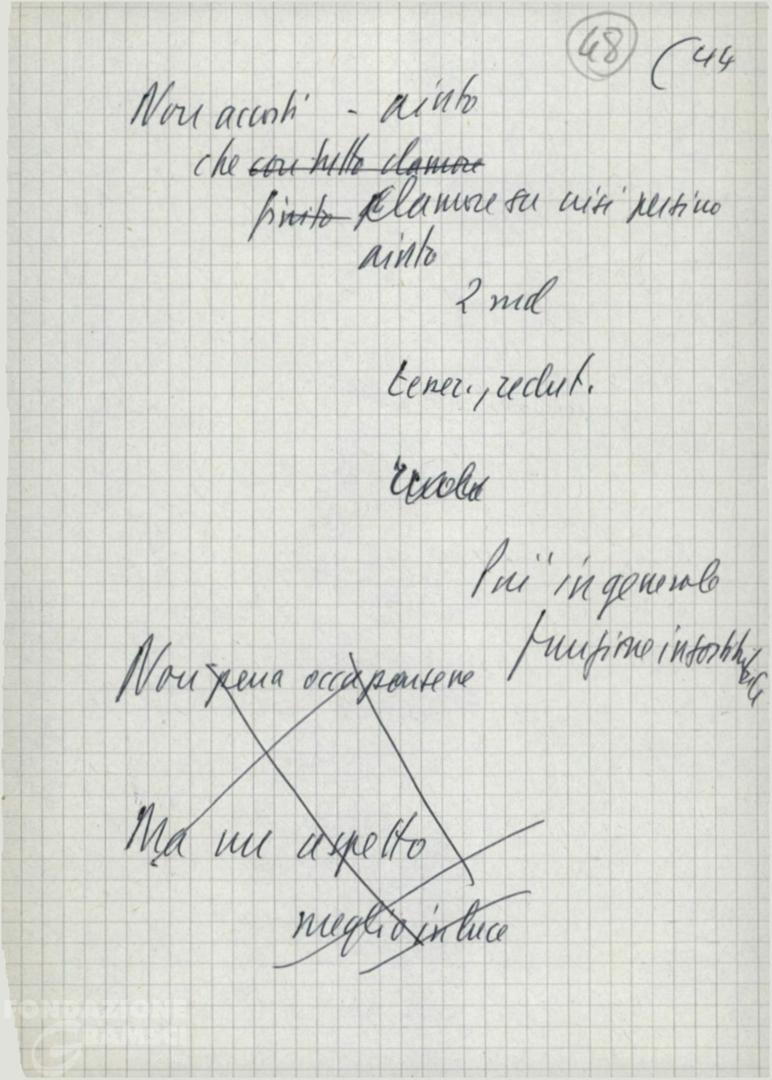 48 (44
Non accosti - aiuto
che con tutto clamore
finito clamore su visi persino
aiuto
2 md
tener., redut.
Più in generale
funzione insostituibile
Non pena occuparsene
Ma un aspetto
meglio in luce
FONDAZIONE
GRAMSCI